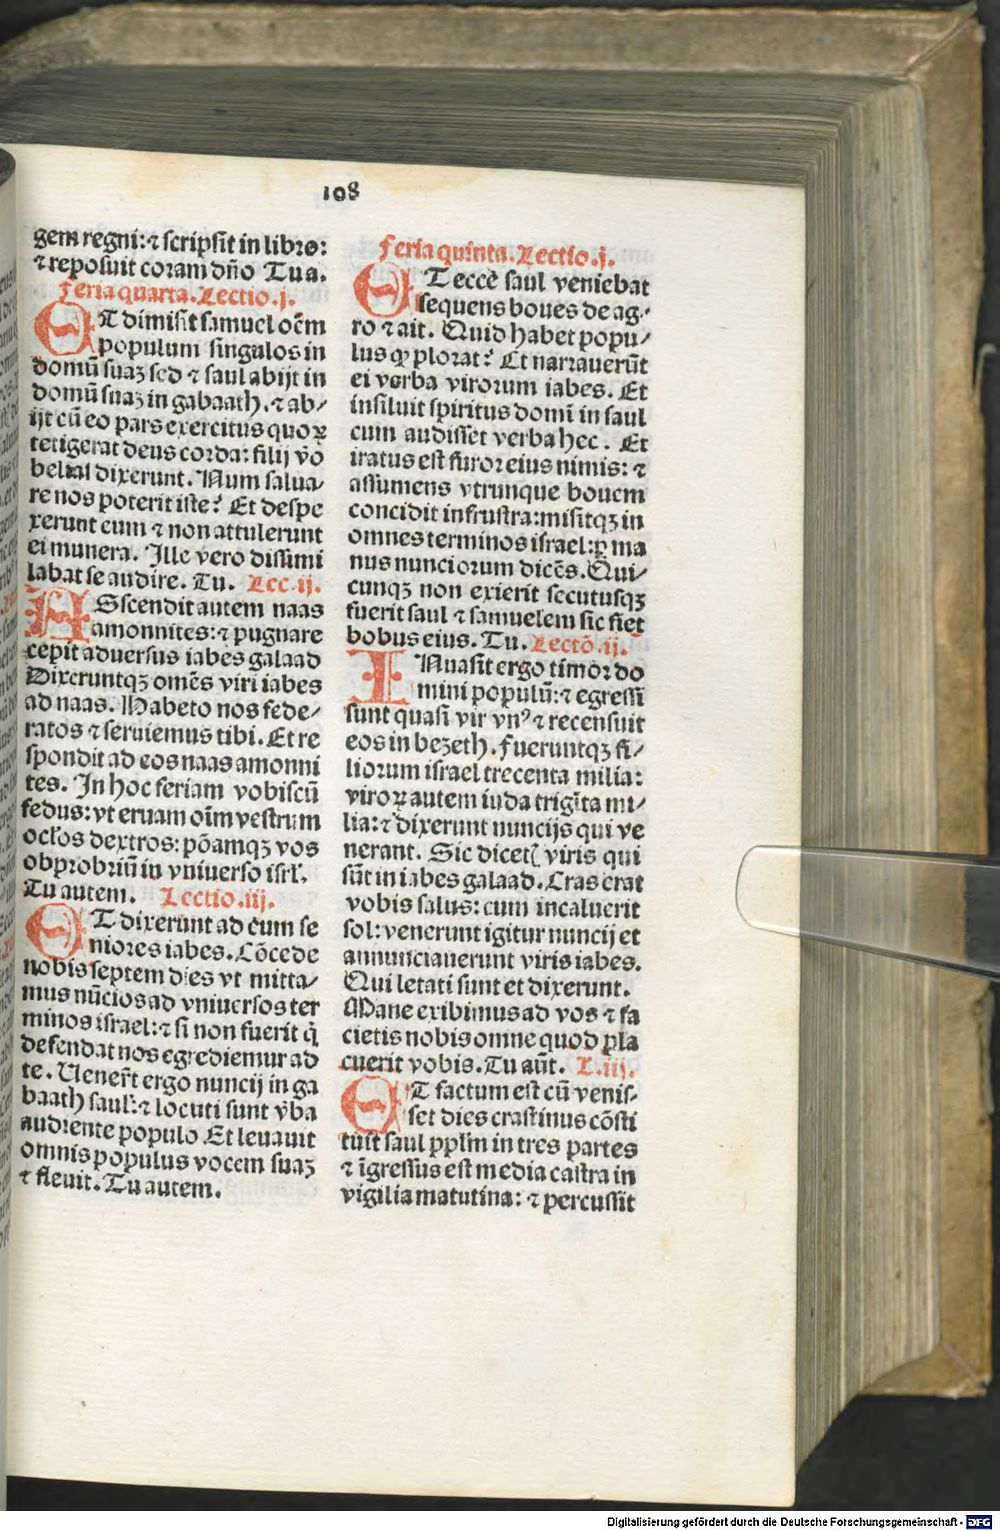 108
gem regni: ⁊ scripsit in libro:
⁊ reposuit coram dño Tua.
Feria quarta. Lectio .j.
ET dimisit samuel oēm
populum singulos in
domū suaꝫ sed ⁊ saul abijt in
domū suaꝫ in gabaath. ⁊ ab/
ijt cū eo pars exercitus quoꝝ
tetigerat deus corda: filij v̄o
belial dixerunt. Num salua/
re nos poterit iste? Et despe
xerunt eum ⁊ non attulerunt
ei munera. Ille vero dissimi
labat se audire. Tu. Lec .ij.
AScendit autem naas
amonnites: ⁊ pugnare
cepit aduersus iabes galaad
Dixeruntqꝫ omēs viri iabes
ad naas. Habeto nos fede/
ratos ⁊ seruiemus tibi. Et re
spondit ad eos naas amonni
tes. In hoc feriam vobiscū
fedus: vt eruam oīm vestrum
ocl'os dextros: pōamqꝫ vos
obprobriū in vniuerso isrl'.
Tu autem. Lectio .iij.
ET dixerunt ad eum se
niores iabes. Cōcede
nobis septem dies vt mitta/
mus nūcios ad vniuersos ter
minos israel: ⁊ si non fuerit q̇
defendat nos egrediemur ad
te. Uener̄t ergo nuncij in ga
baath saul': ⁊ locuti sunt v̄ba
audiente populo Et leuauit
omnis populus vocem suaꝫ
⁊ fleuit. Tu autem.
Feria quinta. Lectio .j.
ET ecce saul veniebat
sequens boues de ag/
ro ⁊ ait. Quid habet popu/
lus ꝙ plorat? Et narrauerūt
ei verba virorum iabes. Et
insiluit spiritus domī in saul
cum audisset verba hec. Et
iratus est furor eius nimis: ⁊
assumens vtrunque bouem
concidit in frustra: misitqꝫ in
omnes terminos israel: ꝑ ma
nus nunciorum dicēs. Qui/
cunqꝫ non exierit secutusqꝫ
fuerit saul ⁊ samuelem sic fiet
bobus eius. Tu. Lectō .ij.
INuasit ergo timor do
mini populū: ⁊ egressi
sunt quasi vir vnꝰ ⁊ recensuit
eos in bezeth. Fueruntqꝫ fi/
liorum israel trecenta milia:
viroꝝ autem iuda trigīta mi/
lia: ⁊ dixerunt nuncijs qui ve
nerant. Sic dicetꝭ viris qui
sūt in iabes galaad. Cras erat
vobis salus: cum incaluerit
sol: venerunt igitur nuncij et
annunciauerunt viris iabes.
Qui letati sunt et dixerunt.
Mane exibimus ad vos ⁊ fa
cietis nobis omne quod pla
cuerit vobis. Tu aūt. L .iij.
ET factum est cū venis/
set dies crastinus cōsti
tuit saul pplm̄ in tres partes
⁊ īgressus est media castra in
vigilia matutina: ⁊ percussit
Digitalisierung gefördert durch die Deutsche Forschungsgemeinschaft - DFG